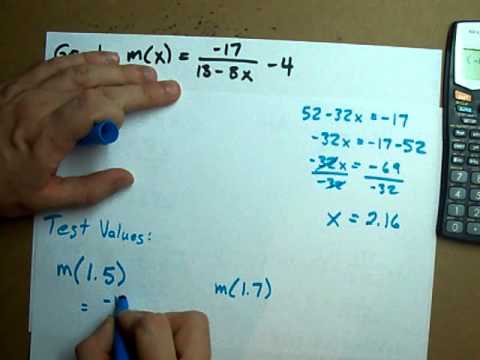 m(x) = -17 / (13 - 8x) - 4
52 - 32x = -17
-32x = -17 - 52
-32x / -32 = -69 / -32
x = 2.16
Test Values:
m(1.5)
m(1.7)
=